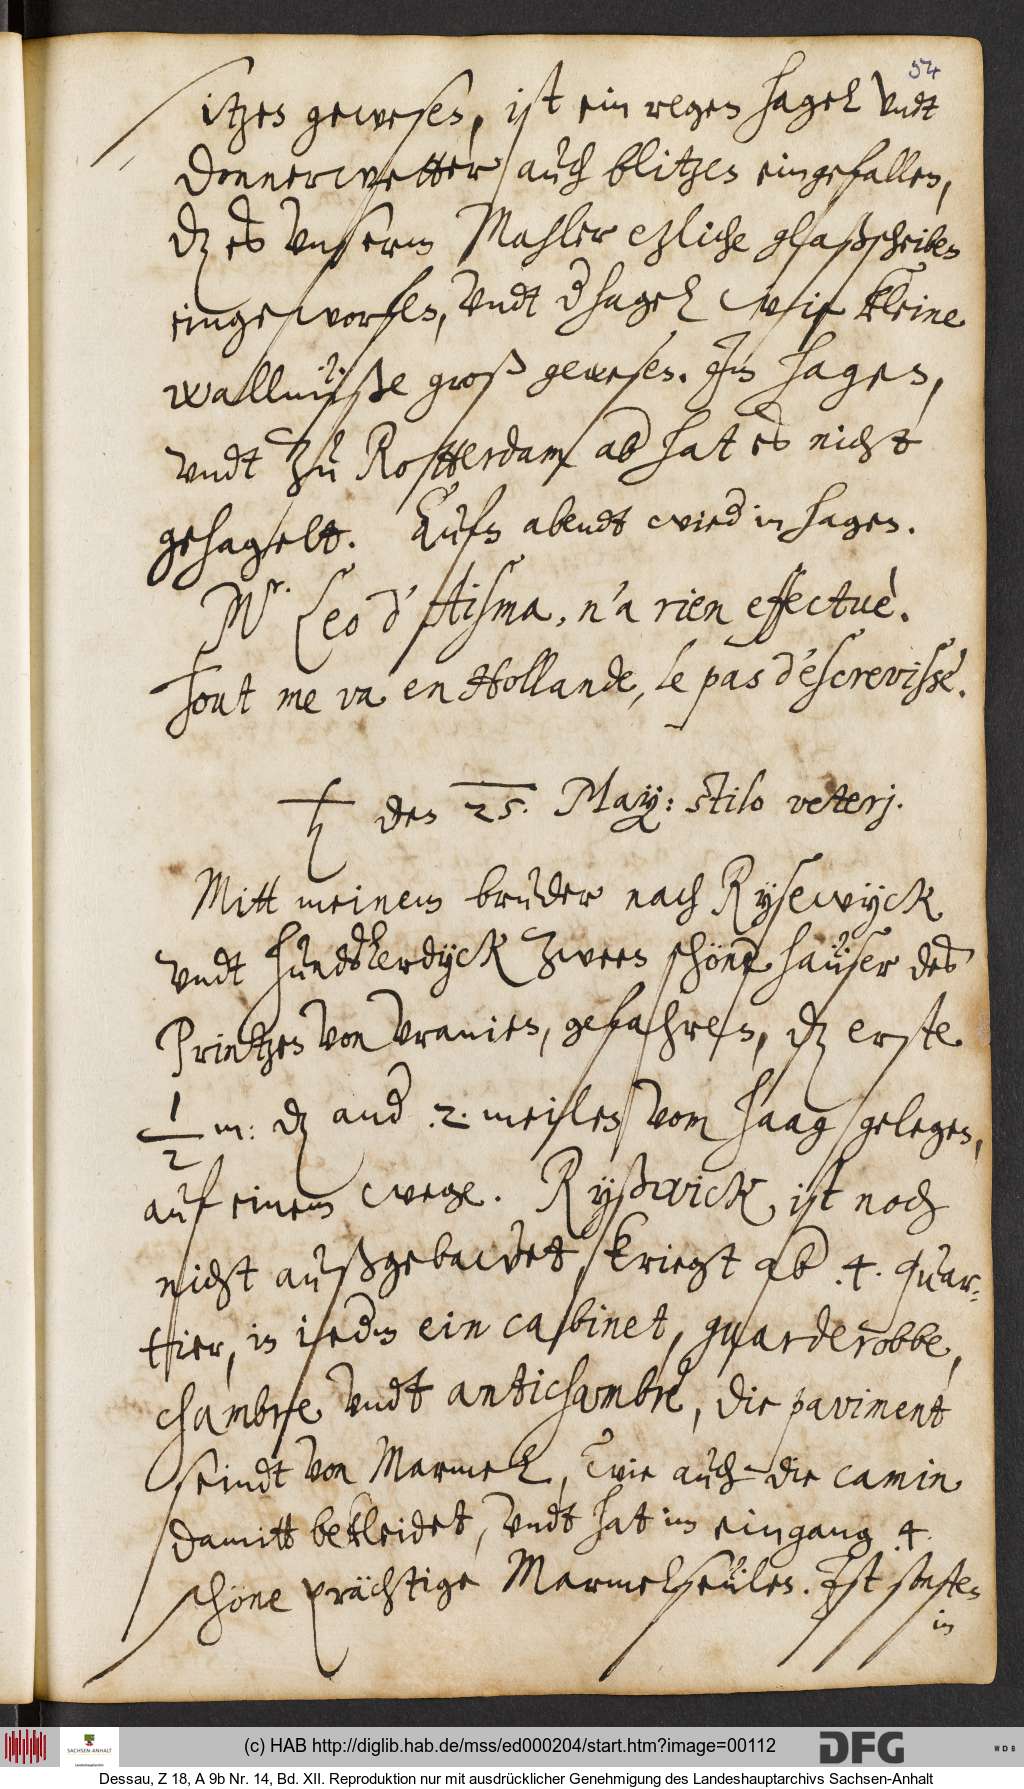 54
sitzes gewesen, ist ein regen hagel vndt
donnerwetter auch blitzen eingefallen,
dz es vnserm Mahler ezliche glaßscheiben
eingeworfen, vndt d hagel wie kleine
wallnüße groß gewesen. Jm hagen,
vndt zu Rotterdam ab hat es nicht
gehagelt. Aufn abendt wied in hagen.
Mr. Leo d'Aisma, n'a rien effectuè.
Tout me va en Hollande, le pas d'èscrevisse.
♄ den 25. May: stilo veterj.
Mitt meinem bruder nach Rysewyck
vndt hundtslerdyck zween schöne haüser des
Printzen von Vranien, gefahren, dz erste
1/2 m: dz and 2. meilen vom haag gelegen,
auf einem wege. Ryßwick ist noch
nicht außgebawet, kriegt ab 4. quar-
tier, in iedm ein cabinet, guarderobbe,
chambre vndt antichambre, die paviment
seindt von Marmel, wie auch die camin
damitt bekleidet, vndt hat im eingang 4.
schöne prächtige Marmelseülen. Jst sonsten
in
(c) HAB http://diglib.hab.de/mss/ed000204/start.htm?image=00112
SACHSEN-ANHALT
Landeshauptarchiv
DFG
WDB
Dessau, Z 18, A 9b Nr. 14, Bd. XII. Reproduktion nur mit ausdrücklicher Genehmigung des Landeshauptarchivs Sachsen-Anhalt